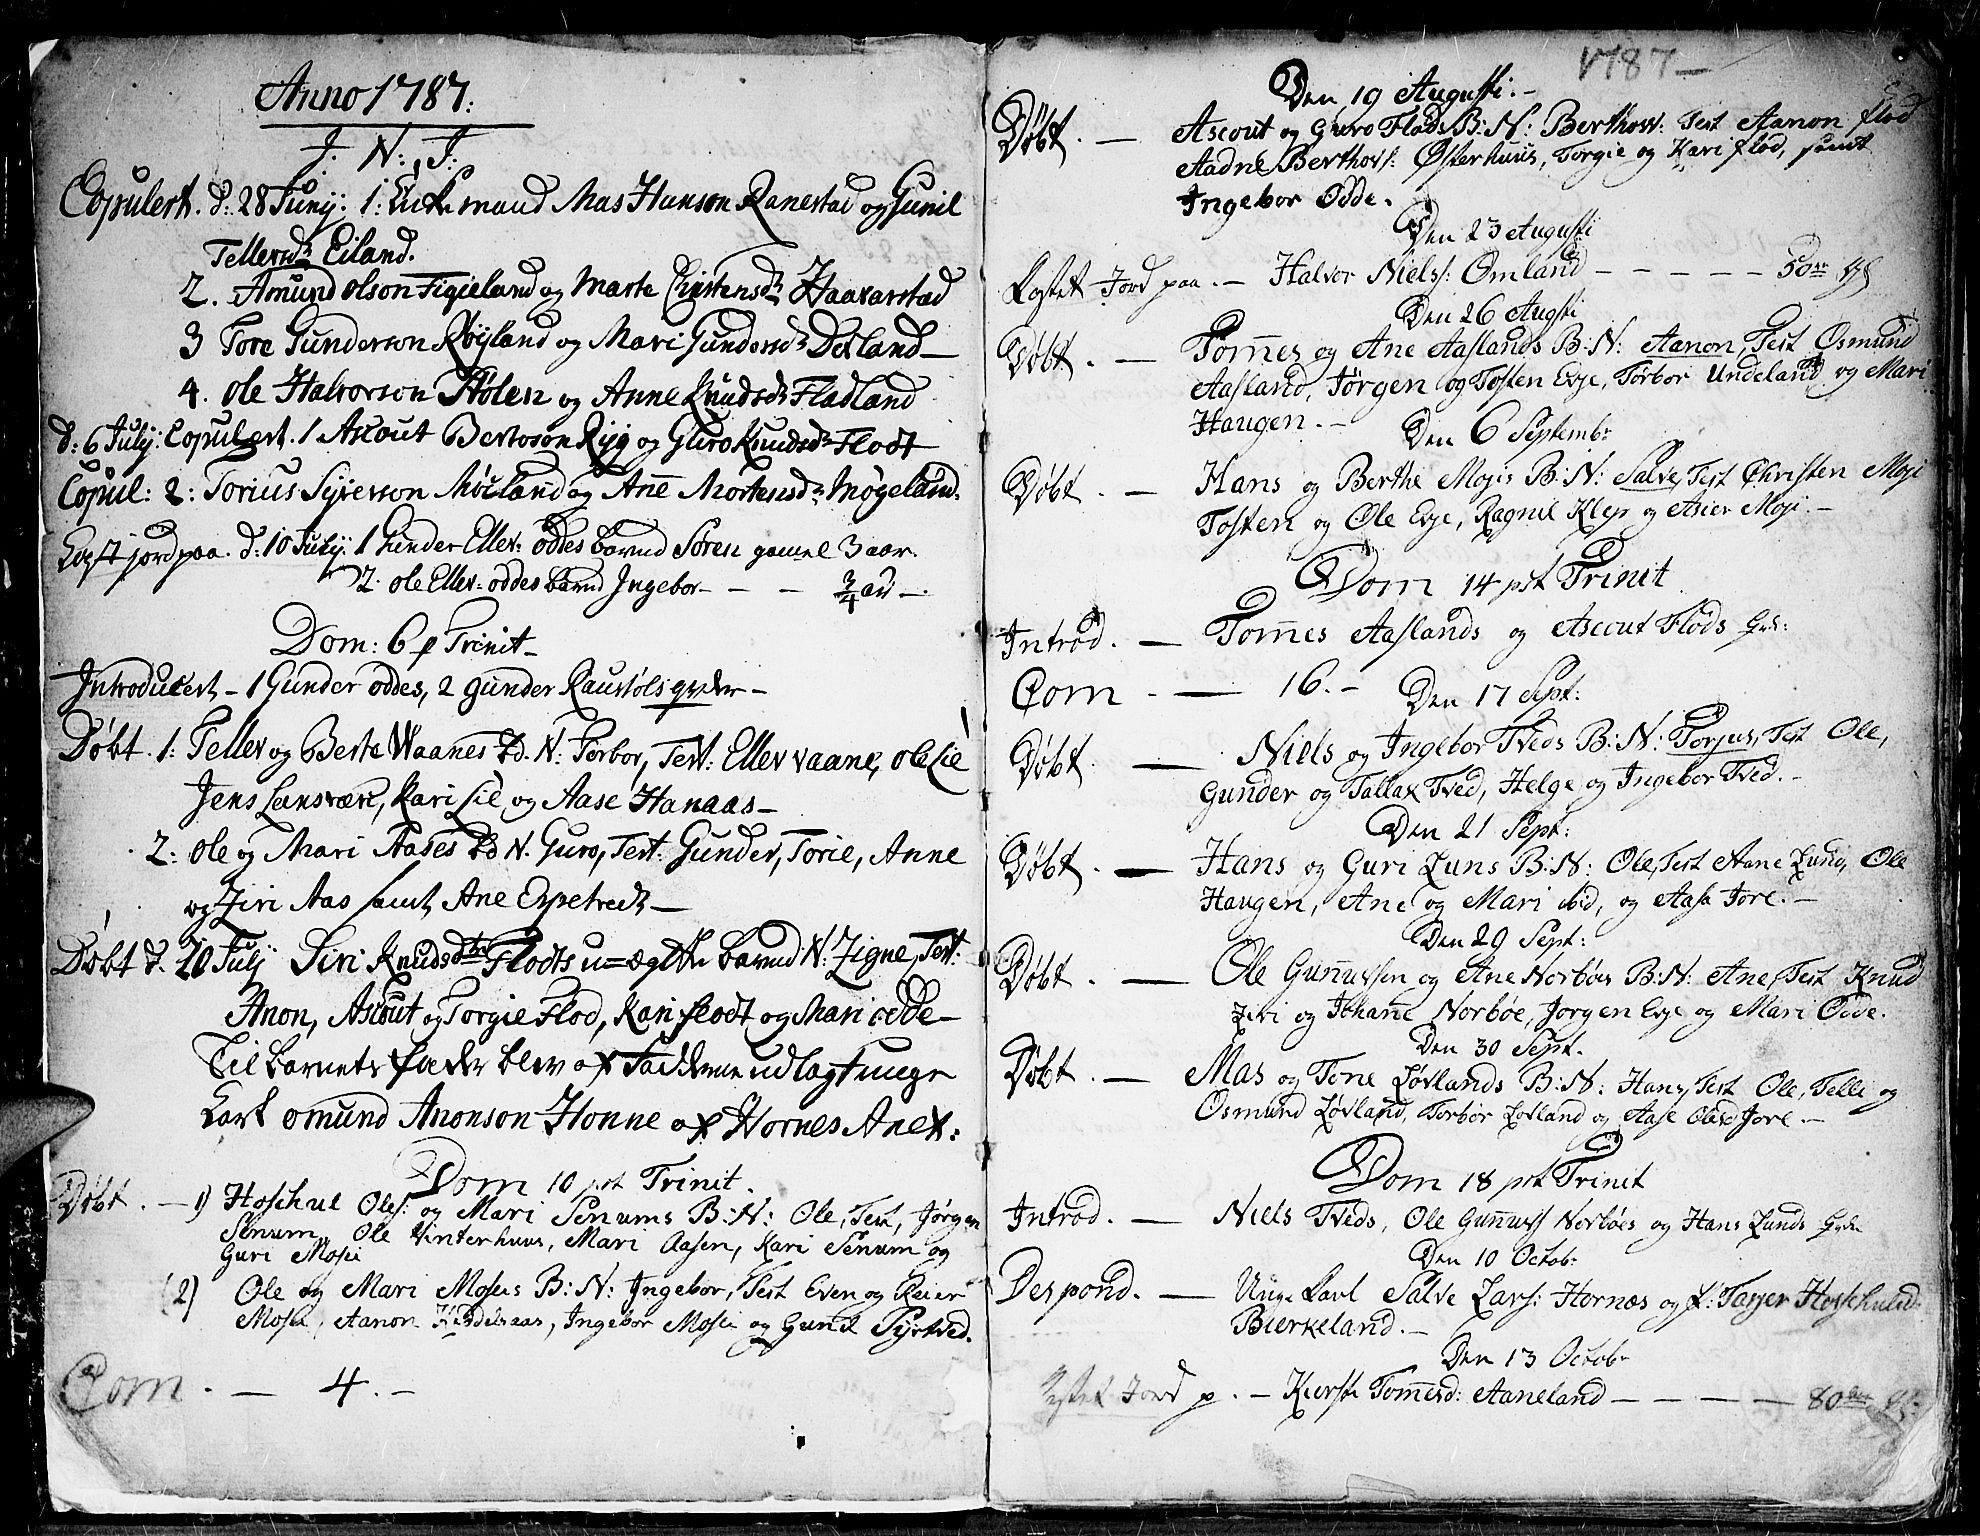 Anno 1787:
J: N: J:
Copulert. d: 28 Junij: 1: Enke mand Mas Hanson Ranestad og Gunil
Tellersdr Eiland.
2. Amund olson Figieland og Marte Christensdr Haavarstad
3 Tore Gunderson Røijland og Mari Gundersdr Døland
4. ole Halvorson Stolen og Anne Knudsdr Fladland
d: 6 Julij: Copulert. 1 Ascout Bertoson Ryg og Guro Knudsdr Flodt
Copul: 2: Torius Syverson Møcland og Ane Mortensdr Møgeland.
Kast jord paa. d: 10 Julij. 1 Gunder Ellev: oddes barnd Søren gamel 3 aar.
2. ole Ellev: oddes barnd Ingebor - - - 3/4 aar -
Dom: 6 p Trinit-
Introducert - 1 Gunder oddes, 2 Gunder Raustøls qvder -
Døbt. 1: Tellev og Berte Waanes bd. N: Torbor, Test: Ellev vaane, ole Lie
Jens Lensvær, Kari Lie og Aase Hanaas -
2: ole og Mari Aases bd N. Guro, Test: Gunder, Torie, Anne
og Ziri Aas samt Ane Espetvedt -
Døbt d. 20 Julj Siri Knudsdtr Flodts u=ægthe barnd N: Zigne, Test:
Anon, Ascout og Torgie Flod, Kari flodt og Mari odde -
Til barnets fader blev af Fadderne udlagt unge
Karl omund Anonson Honne af Hornes Anex:
Dom 10 pst Trinit.
Døbt. - 1) Hoschul Oles: og Mari Senums B: N: Ole, Test, Jørgen
Senum, Ole Vinterhuus, Mari Aasen, Kari Senum og
Guri Mosei
(2) Ole og Mari Moseis B: N: Ingebor, Test Even og Reier
Mosei, Aanon, Ingebor Mosei og Gunil Syrtved.
Com. - 4. -
1787 -
Den 19 Augusti. -
Døbt. - Ascout og Guro Flods B: N: Berthow: Test Aanon flod
Aadne Berthows: Østerhuus, Torgie og Kari flod, samt
Ingebor Odde.
Den 23 Augusti
Kastet Jord paa. - Halvor Niels: Omland - - - - - 50
Den 26 Augsti
Døbt. - Tomes og Ane Aaslands B: N: Aanon, Test Osmund
Aasland, Jørgen og Tosten Evje, Torbor Undeland og Mari
Haugen. -
Den 6 Septembr
Døbt. - Hans og Berthe Mojis B: N: Salve, Test Christen Moji
Tosten og Ole Evje, Ragnil Klep og Asier Moji. -
Dom 14 pst Trinit
Introd. - Tomes Aaslands og Ascout Flods Qvd:
Com - 16. -
Den 17 Sept:
Døbt. - Niels og Ingebor Tveds B: N: Torjus, Test Ole,
Gunder og Tallax Tved, Helge og Ingebor Tved. -
Den 21 Sept:
Døbt. - Hans og Guri Luns B: N: Ole, Test Aane Lund, Ole
Haugen, Ane og Mari ibid, og Aasa Jore. -
Den 29 Sept:
Døbt. - Ole Gunussen og Ane Norbøes B: N: Ane, Test Knud
Ziri og Johane Norbøe, Jorgen Evje og Mari Odde.
Den 30 Sept.
Døbt. - Mas og Tone Løvlands B: N: Hans, Test Ole, Telle og
Osmund Løvland, Torbor Lovland og Aase Jore. -
Dom 18 pst Trinit
Introd. - Niels Tveds, Ole Gunuss Norbøes og Hans Lunds Qvder
Den 10 Octobr
Despond. - Unge karl Salve Lars: Hornæs og p: Tarjer Hoschulsd.
Bierkeland. -
Den 13 Octobr
Kastet Jord p. - Kiersti Tomesd: Aaneland - - - - 80